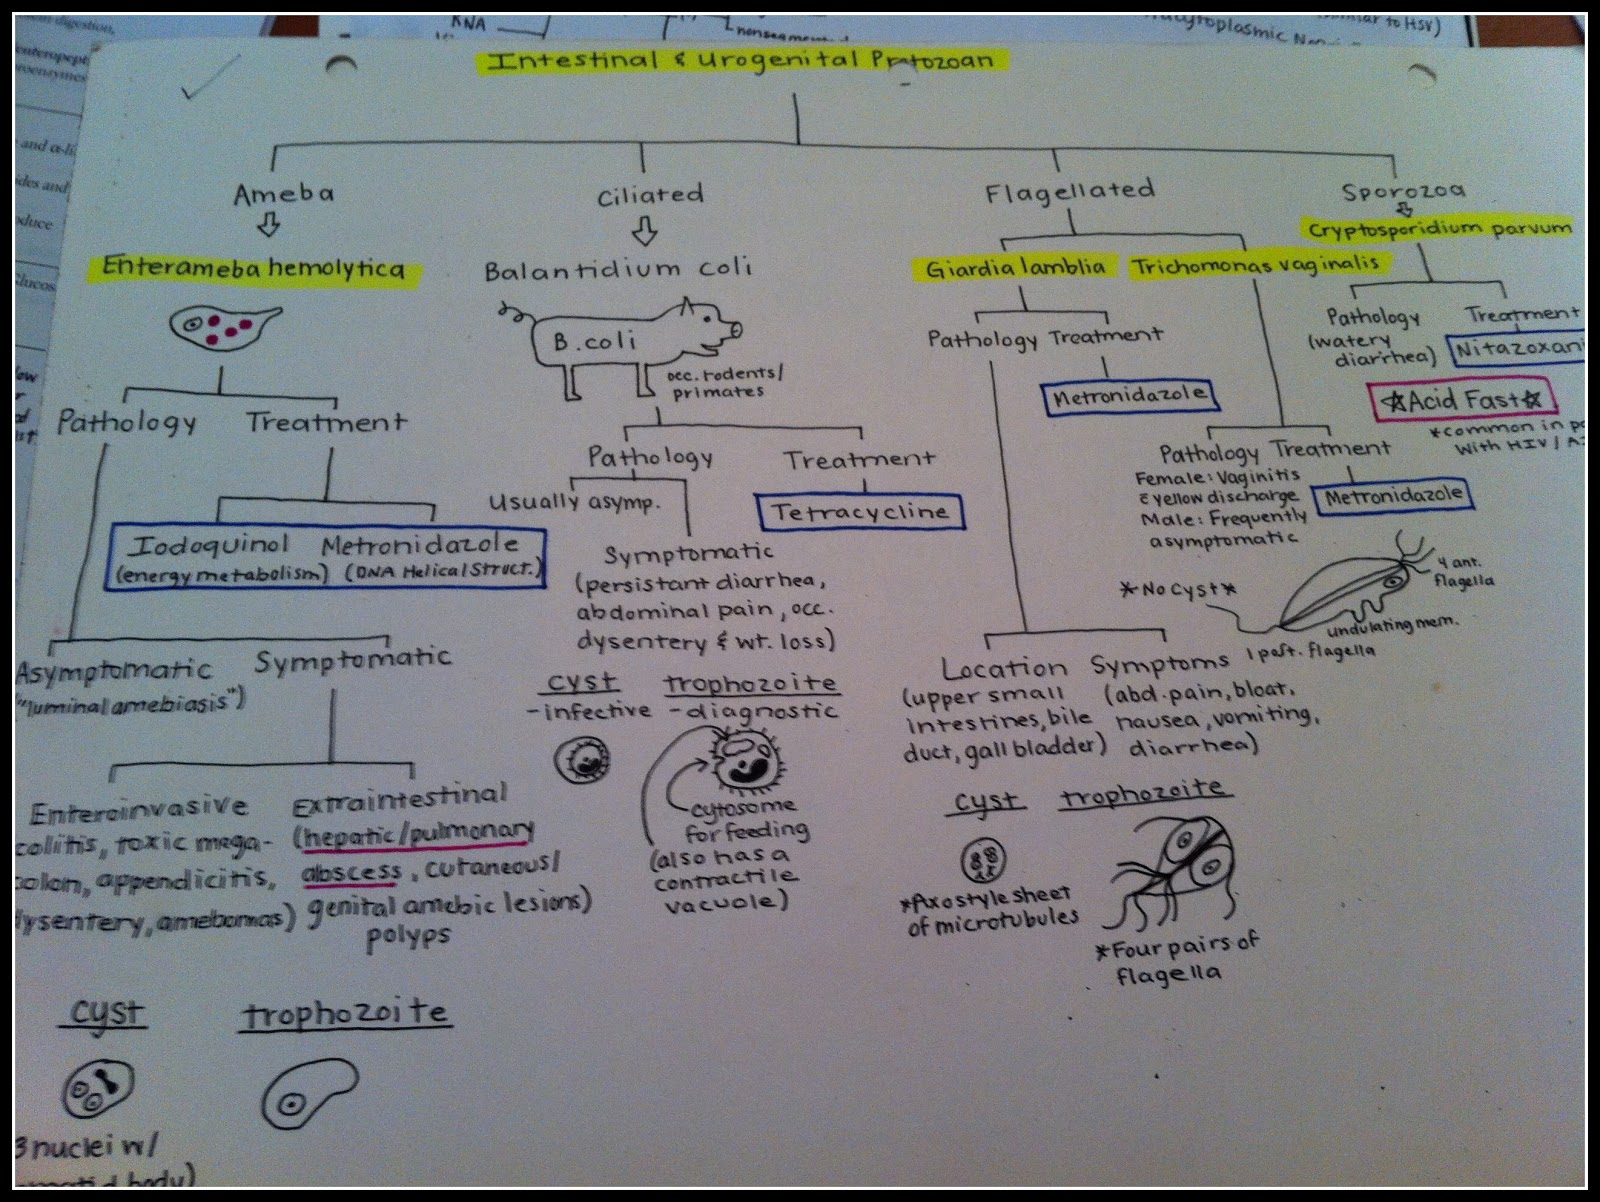 RNA
nonsegment
to HSV)
Intestinal & Urogenital Protozoan
and α-li
des and
duce
Ameba
Ciliated
Flagellated
Sporozoa
Enterameba hemolytica
Balantidium coli
Giardia lamblia
Trichomonas vaginalis
Cryptosporidium parvum
B.coli
occ. rodents/
primates
Pathology
Treatment
Iodoquinol
(energy metabolism)
Metronidazole
(DNA Helical Struct.)
Asymptomatic
"luminal amebiasis")
Symptomatic
Enteroinvasive
colitis, toxic mega-
colon, appendicitis,
dysentery, amebomas)
Extraintestinal
(hepatic/pulmonary
abscess, cutaneous/
genital amebic lesions)
polyps
cyst
trophozoite
3 nuclei w/
body)
Pathology
Treatment
Usually asymp.
Tetracycline
Symptomatic
(persistant diarrhea,
abdominal pain, occ.
dysentery & wt. loss)
cyst
-infective
trophozoite
-diagnostic
cytosome
for feeding
(also has a
contractile
vacuole)
Pathology
Treatment
Metronidazole
Location
(upper small
intestines, bile
duct, gall bladder)
Symptoms
(abd. pain, bloat,
nausea, vomiting,
diarrhea)
cyst
trophozoite
*Axostyle sheet
of microtubules
*Four pairs of
flagella
Pathology
Treatment
Female: Vaginitis
& yellow discharge
Male: Frequently
asymptomatic
Metronidazole
*No Cyst*
4 ant.
flagella
undulating mem.
1 post. flagella
Pathology
(watery
diarrhea)
Treatment
Nitazoxan
☆Acid Fast☆
*common in
with HIV/A